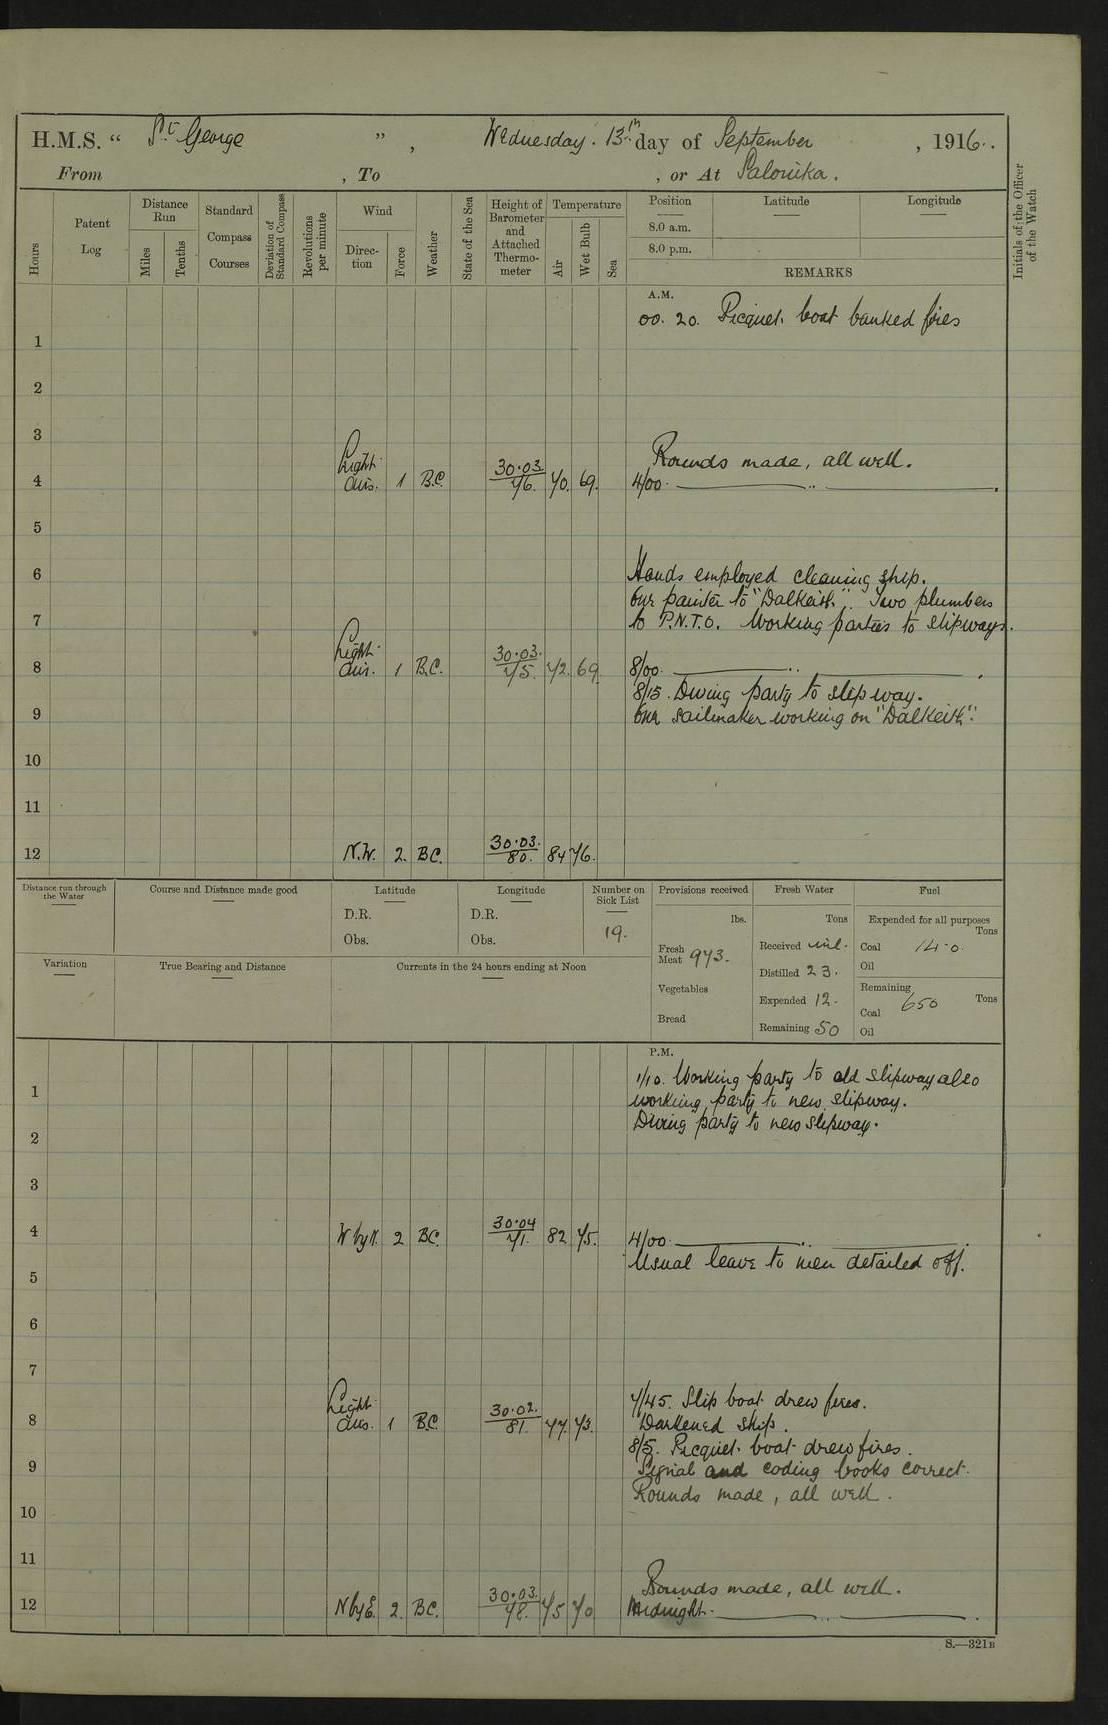 H.M.S. “ St George ” , Wednesday. 13th day of September , 1916.
From , To , or At Salonika.
Hours
Patent Log
Distance Run
Miles
Tenths
Standard Compass Courses
Deviation of Standard Compass
Revolutions per minute
Wind
Direction
Force
Weather
State of the Sea
Height of Barometer and Attached Thermometer
Temperature
Air
Wet Bulb
Sea
Position Latitude Longitude
8.0 a.m.
8.0 p.m.
REMARKS
Initials of the Officer of the Watch
A.M.
00. 20. Picquet boat banked fires
1
2
3
Rounds made, all well.
4 Light airs. 1 B.C. 30.03. 76. 70. 69. 4/00. ——— .. ———
5
6 Hands employed cleaning ship.
Our painter to "Dalkeith". Two plumbers
7 to P.N.T.O. Working parties to slipways.
8 Light airs. 1 B.C. 30.03. 75. 72. 69. 8/00. ——— .. ———
8/15. Diving party to slipway.
9 Our sailmaker working on "Dalkeith".
10
11
12 N.W. 2. B.C. 30.03. 80. 84 76.
Distance run through the Water
Course and Distance made good
Latitude
D.R.
Obs.
Longitude
D.R.
Obs.
Number on Sick List
19.
Provisions received
lbs.
Fresh Meat 973.
Vegetables
Bread
Fresh Water
Tons
Received nil.
Distilled 23.
Expended 12.
Remaining 50
Fuel
Expended for all purposes
Tons
Coal 14.0
Oil
Remaining
Tons
Coal 650
Oil
Variation
True Bearing and Distance
Currents in the 24 hours ending at Noon
P.M.
1/10. Working party to old slipway also
1 working party to new slipway.
Diving party to new slipway.
2
3
4 W by N. 2 B.C. 30.04 71. 82 75. 4/00. ——— .. ———
Usual leave to men detailed off.
5
6
7
7/45. Slip boat drew fires.
8 Light airs. 1 B.C. 30.02. 81. 77. 73. Darkened ship.
8/5. Picquet boat drew fires.
9 Signal and coding books correct.
Rounds made, all well.
10
11
Rounds made, all well.
12 N by E. 2. B.C. 30.03. 78. 75 70 Midnight. ——— .. ———
S.—321B